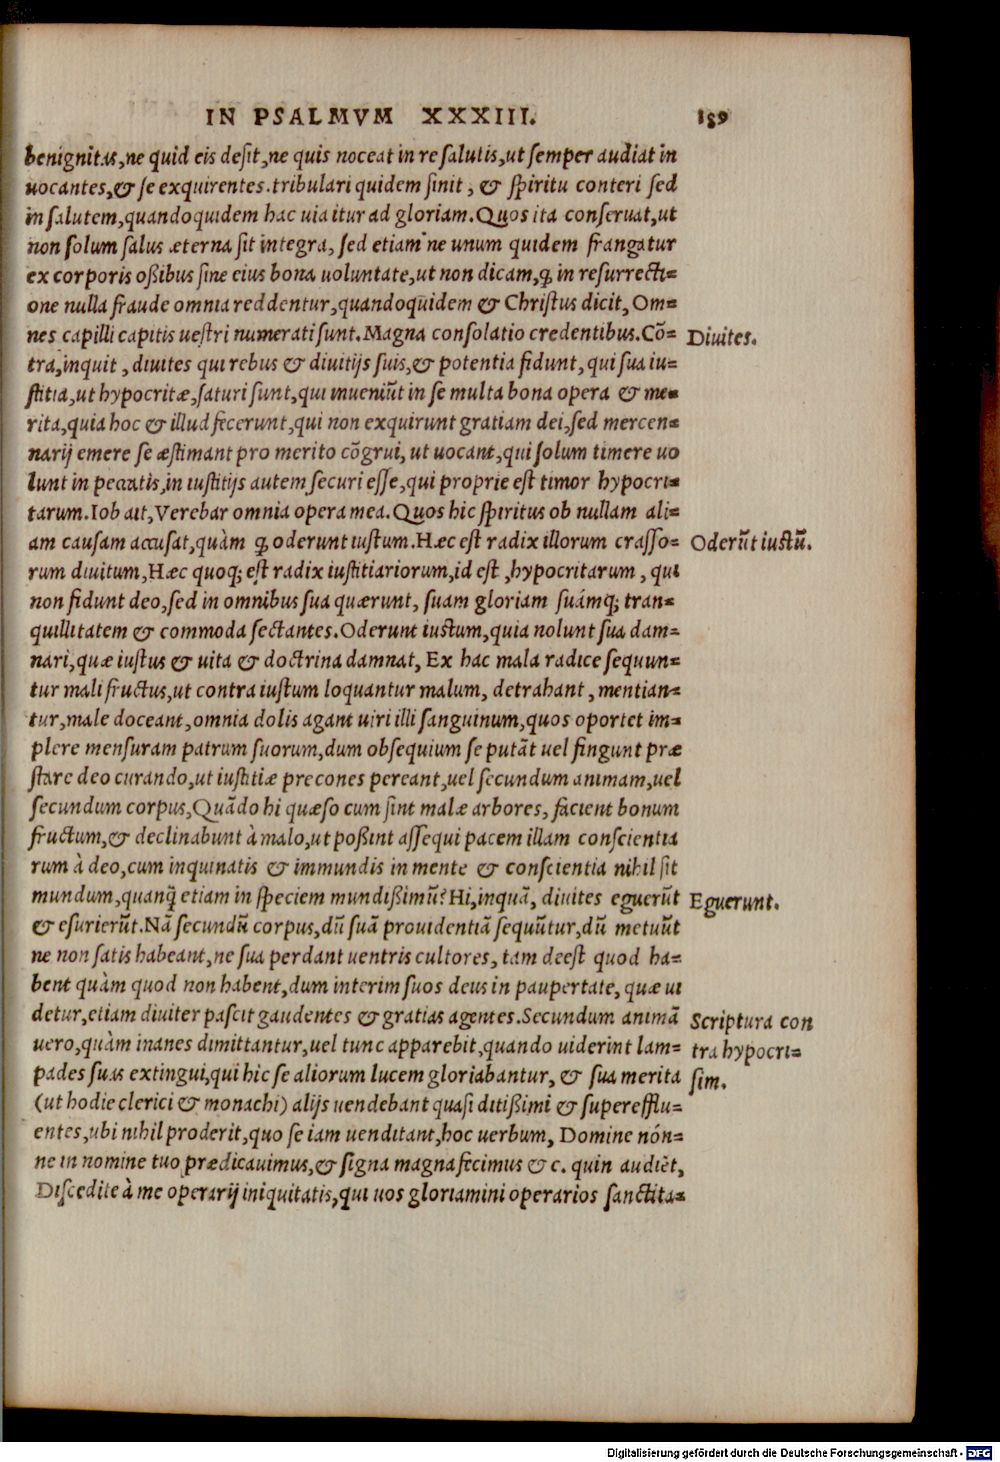 IN PSALMVM XXXIII. 159
benignitas, ne quid eis desit, ne quis noceat in re salutis, ut semper audiat in
uocantes, & se exquirentes. tribulari quidem sinit, & spiritu conteri sed
in salutem, quandoquidem hac uia itur ad gloriam. Quos ita conseruat, ut
non solum salus æterna sit integra, sed etiam ne unum quidem frangatur
ex corporis oßibus sine eius bona uoluntate, ut non dicam, ꝙ in resurrecti=
one nulla fraude omnia reddentur, quandoquidem & Christus dicit, Om=
nes capilli capitis uestri numerati sunt. Magna consolatio credentibus. Cõ=
Diuites.
tra, inquit, diuites qui rebus & diuitijs suis, & potentia fidunt, qui sua iu=
stitia, ut hypocritæ, saturi sunt, qui inueniũt in se multa bona opera & me=
rita, quia hoc & illud fecerunt, qui non exquirunt gratiam dei, sed mercen=
narij emere se æstimant pro merito cõgrui, ut uocant, qui solum timere uo
lunt in peccatis, in iustitijs autem securi esse, qui proprie est timor hypocri=
tarum. Iob ait, Verebar omnia opera mea. Quos hic spiritus ob nullam ali=
am causam accusat, quàm ꝙ oderunt iustum. Hæc est radix illorum crasso=
Oderũt iustũ.
rum diuitum, Hæc quoq; est radix iustitiariorum, id est, hypocritarum, qui
non fidunt deo, sed in omnibus sua quærunt, suam gloriam suámq; tran=
quillitatem & commoda sectantes. Oderunt iustum, quia nolunt sua dam=
nari, quæ iustus & uita & doctrina damnat, Ex hac mala radice sequun=
tur mali fructus, ut contra iustum loquantur malum, detrahant, mentian=
tur, male doceant, omnia dolis agant uiri illi sanguinum, quos oportet im=
plere mensuram patrum suorum, dum obsequium se putãt uel fingunt præ
stare deo curando, ut iustitiæ precones pereant, uel secundum animam, uel
secundum corpus, Quãdo hi quæso cum sint malæ arbores, facient bonum
fructum, & declinabunt à malo, ut poßint assequi pacem illam conscientia
rum à deo, cum inquinatis & immundis in mente & conscientia nihil sit
mundum, quanq̃ etiam in speciem mundißimũ? Hi, inquã, diuites eguerũt
Eguerunt.
& esurierũt. Nã secundũ corpus, dũ suã prouidentiã sequũtur, dũ metuũt
ne non satis habeant, ne sua perdant uentris cultores, tam deest quod ha=
bent quàm quod non habent, dum interim suos deus in paupertate, quæ ui
detur, etiam diuiter pascit gaudentes & gratias agentes. Secundum animã
Scriptura con
uero, quàm inanes dimittantur, uel tunc apparebit, quando uiderint lam=
tra hypocri=
pades suas extingui, qui hic se aliorum lucem gloriabantur, & sua merita
sim.
(ut hodie clerici & monachi) alijs uendebant quasi ditißimi & superefflu=
entes, ubi nihil proderit, quo se iam uenditant, hoc uerbum, Domine nón=
ne in nomine tuo prædicauimus, & signa magna fecimus & c. quin audiẽt,
Discedite à me operarij iniquitatis, qui uos gloriamini operarios sanctita=
Digitalisierung gefördert durch die Deutsche Forschungsgemeinschaft - DFG